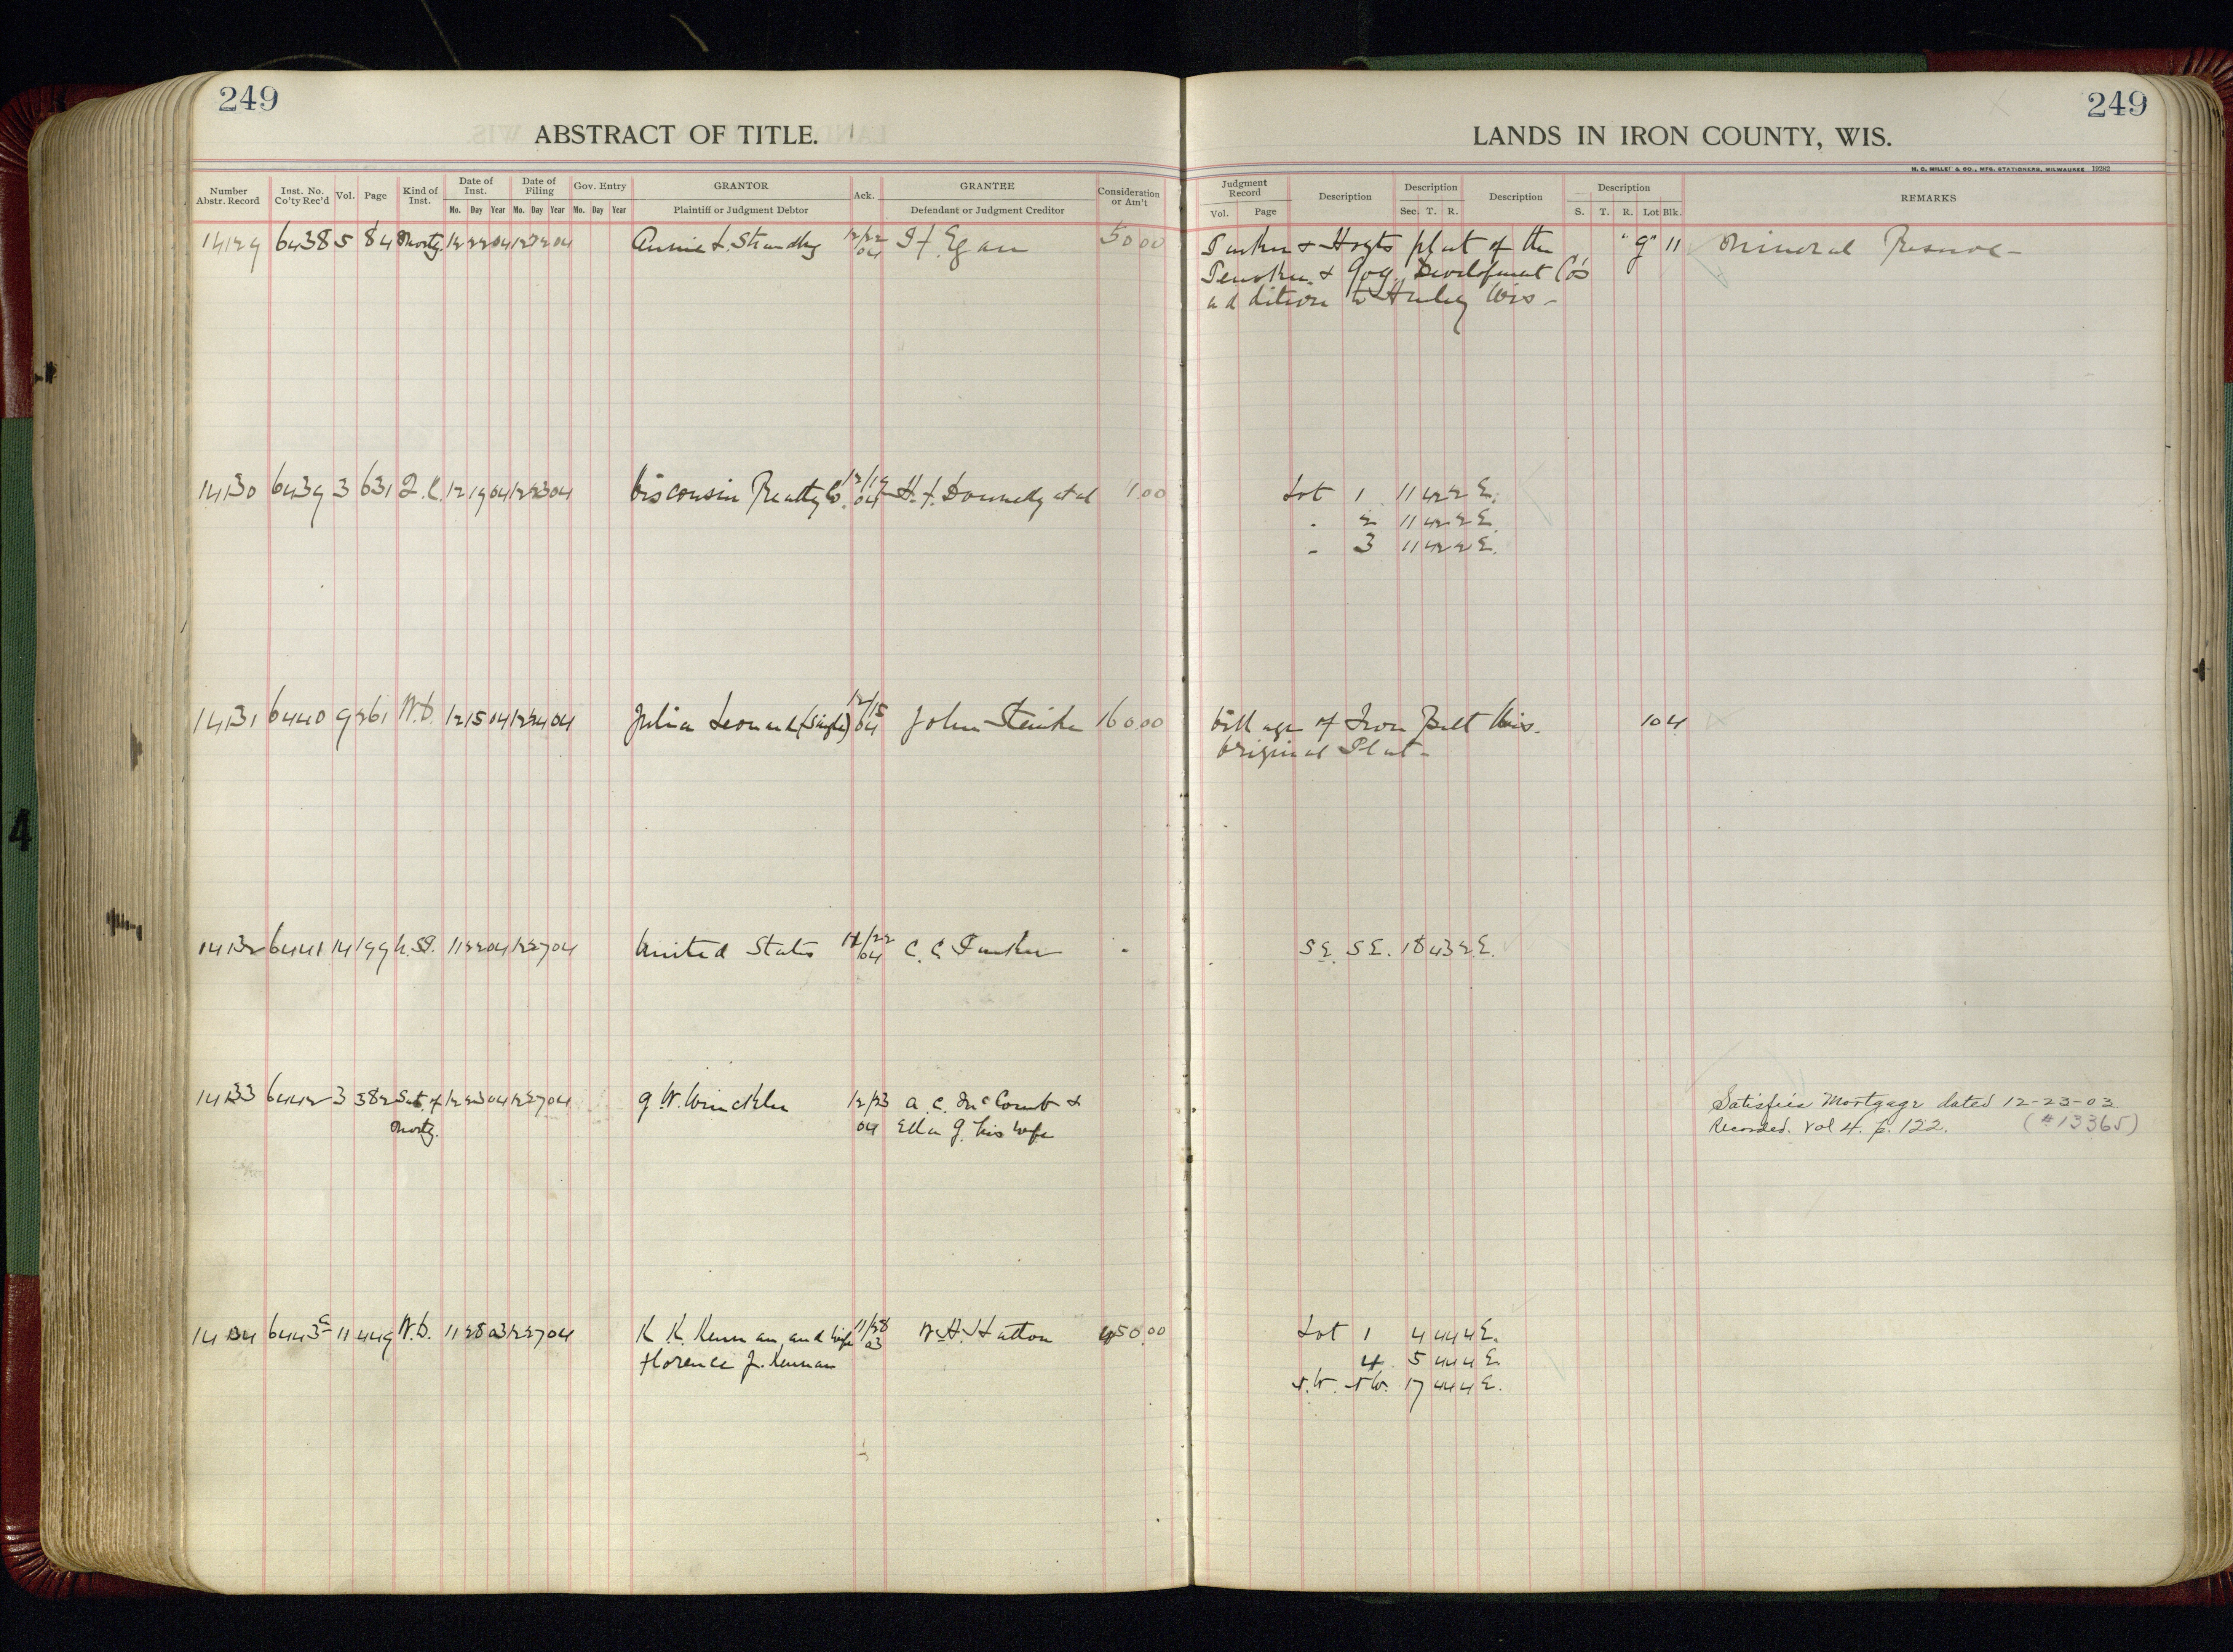 249
249
ABSTRACT OF TITLE.
LANDS IN IRON COUNTY, WIS.
H. C. MILLER & CO., MFG. STATIONERS, MILWAUKEE 19282
Number Abstr. Record Inst. No. Co'ty Rec'd Vol. Page Kind of Inst. Date of Inst. Date of Filing Gov. Entry GRANTOR Ack. GRANTEE Consideration or Am't Judgment Record Description Description Description Description REMARKS
Mo. Day Year Mo. Day Year Mo. Day Year Plaintiff or Judgment Debtor Defendant or Judgment Creditor Vol. Page Sec. T. R. S. T. R. Lot Blk.
14129 6438 5 84 Mortg. 12 22 04 12 22 04 Annie L. 12/22 04 Egan 50 00 & Hoyts plat of the "9" 11 Mineral Reserve -
& Gog. Development Co's
addition to Hurley Wis -
14130 6439 3 631 Q.C. 12 19 04 12 23 04 Wisconsin Realty Co. 12/19 04 H. F. Donnelly et al 1.00 Lot 1 11 42 2 E.
" 2 11 42 2 E.
" 3 11 42 2 E.
14131 6440 9 261 W.D. 12 15 04 12 24 04 Julia Leonard (single) 12/15 04 John 160.00 Village of Iron Belt Wis. 10 4
Original Plat -
14132 6441 14 199 11 22 04 12 27 04 United States 11/22 04 C. C. - SE. SE. 18 43 2 E.
14133 6442 3 382 Sat. of 12 23 04 12 27 04 G. W. Winckler 12/23 04 A. C. McComb & Satisfies Mortgage dated 12-23-03
Mortg. Ella G. his wife Recorded. Vol 4. p. 122. (#13365)
14134 6443 a 11 449 W.D. 11 28 03 12 27 04 K. K. Kennan and wife 11/28 03 W. H. Hatton 450.00 Lot 1 4 44 4 E.
Florence J. Kennan 4 5 44 4 E
17 44 4 E.
4